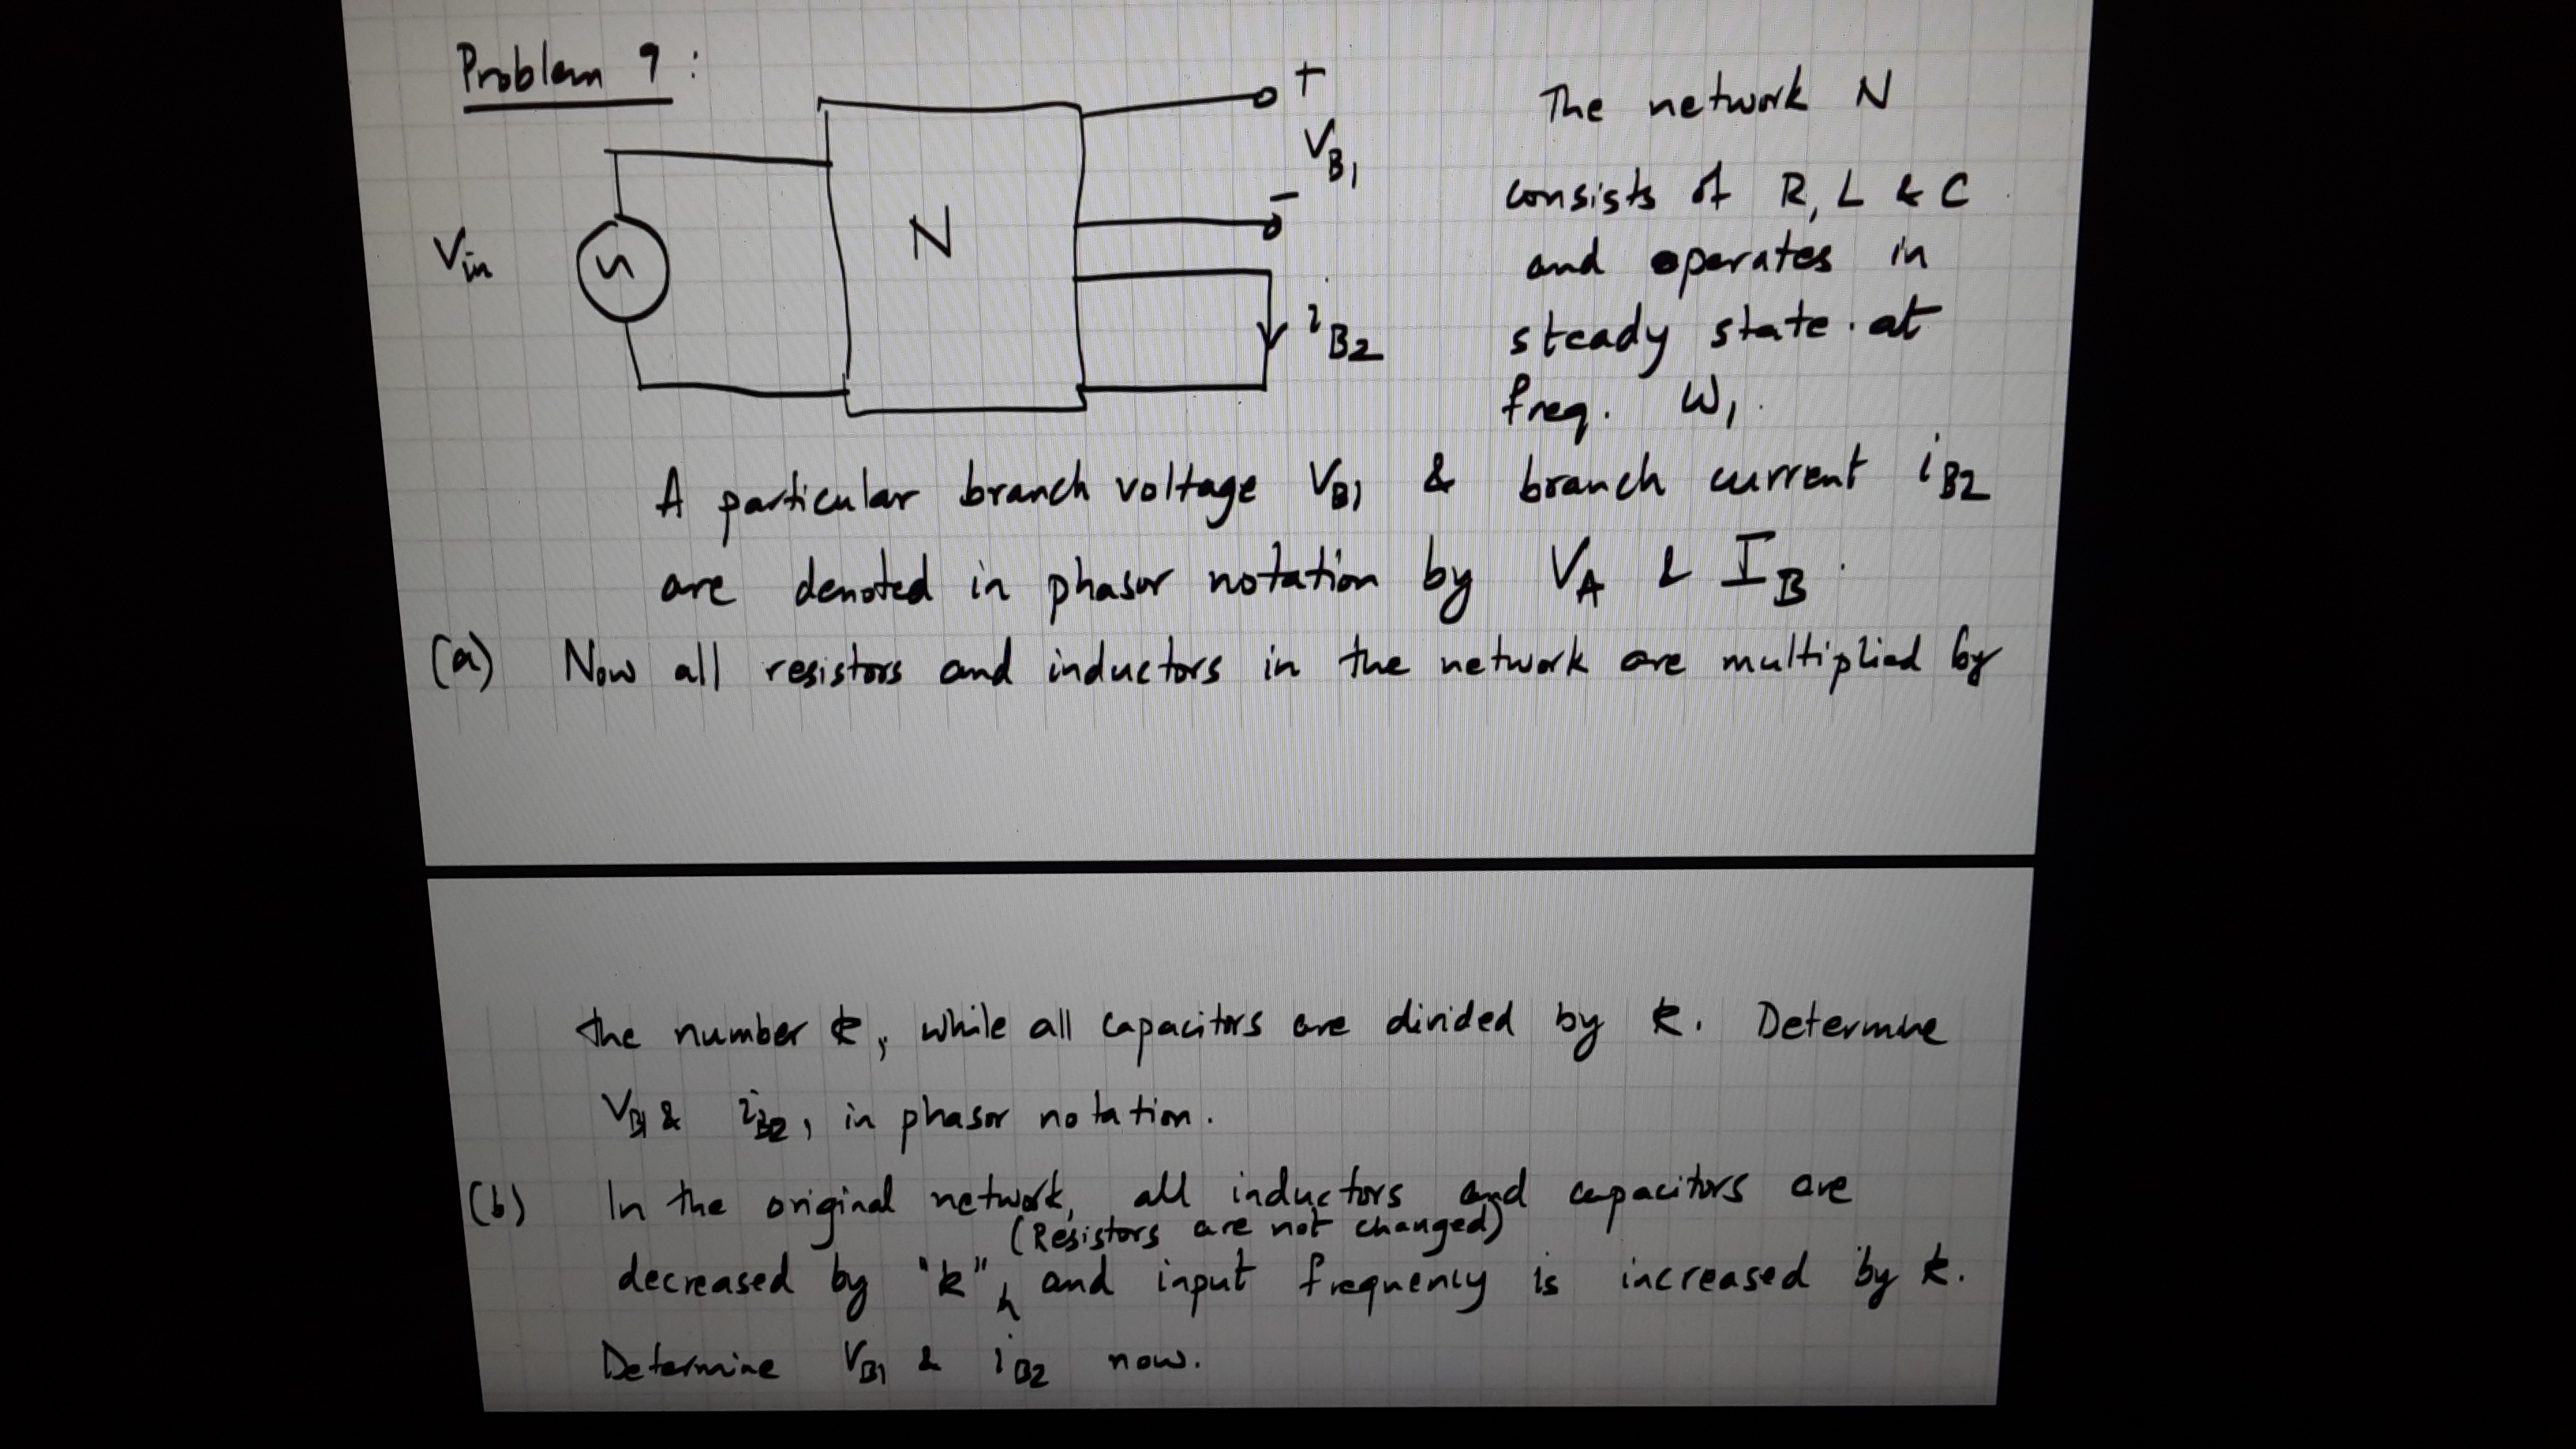 Problem 9 :
+
V_B1
-
V_in
N
i_B2
The network N
consists of R, L & C
and operates in
steady state at
freq. ω_1.
A particular branch voltage V_B1 & branch current i_B2
are denoted in phasor notation by V_A & I_B.
(a) Now all resistors and inductors in the network are multiplied by
the number k, while all capacitors are divided by k. Determine
V_B1 & i_B2, in phasor notation.
(b) In the original network, all inductors and capacitors are
(Resistors are not changed)
decreased by "k", and input frequency is increased by k.
Determine V_B1 & i_B2 now.